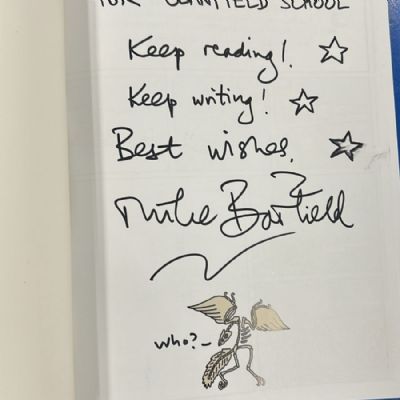 FOR SCHOOL
Keep reading!
Keep writing!
Best wishes.
Mike Barfield
who?